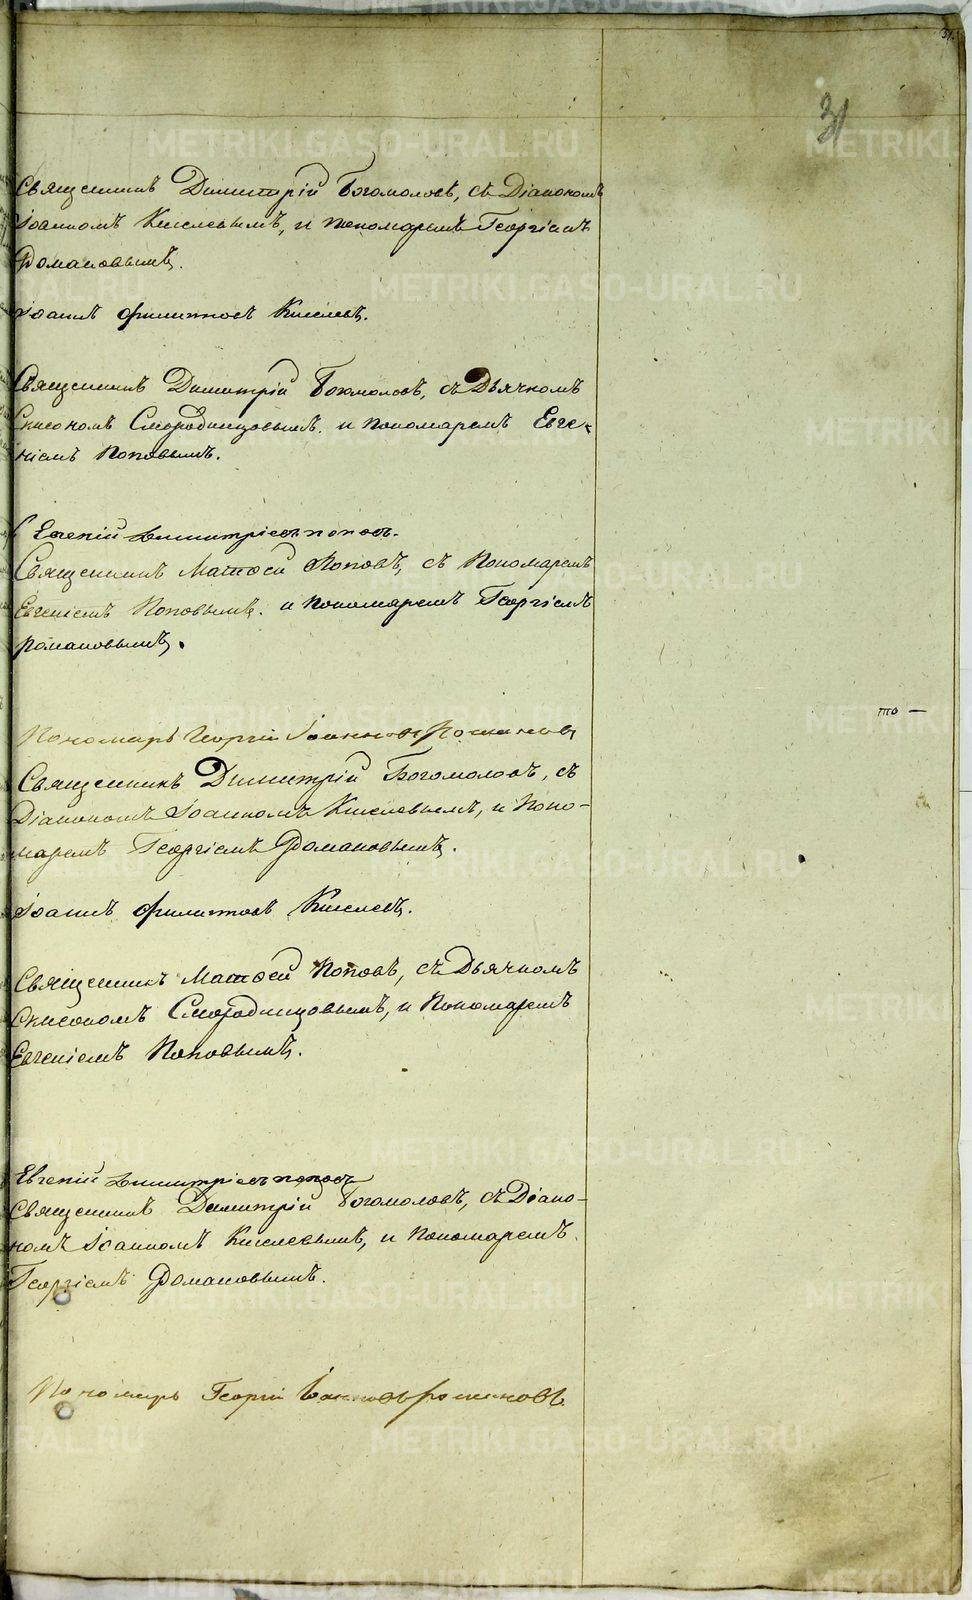 31.
31
Священникъ Димитрій Богомоловъ, съ Діакономъ
Іоанномъ Киселевымъ, и пономаремъ Георгіемъ
Романовымъ.
Іоаннъ Филиппов Киселевъ.
Священникъ Димитрій Богомоловъ, съ Дьячкомъ
Симеономъ Смородинцовымъ. и пономаремъ Евге-
ніемъ Поповымъ.
Евгеній Димитріевъ поповъ.
Священникъ Матѳей Поповъ, съ Пономаремъ
Евгеніемъ Поповымъ. и пономаремъ Георгіемъ
Романовымъ.
то —
Пономарь Георгій Іоанновъ Романовъ
Священникъ Димитрій Богомоловъ, съ
Діакономъ Іоанномъ Киселевымъ, и Поно-
маремъ Георгіемъ Романовымъ.
Іоаннъ Филипповъ Киселевъ.
Священникъ Матѳей Поповъ, съ Дьячкомъ
Симеономъ Смородинцовымъ, и Пономаремъ
Евгеніемъ Поповымъ.
Евгеній Димитріевъ поповъ
Священникъ Димитрій Богомоловъ, съ Діако-
номъ Іоанномъ Киселевымъ, и Пономаремъ
Георгіемъ Романовымъ.
Пономарь Георгій Іоанновъ Романовъ
METRIKI.GASO-URAL.RU